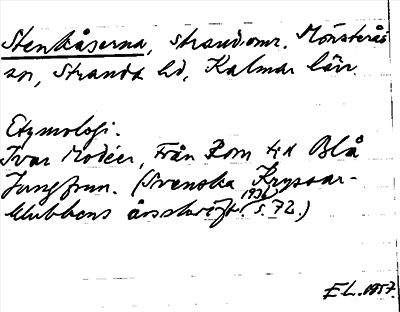 Stenkåserna, strandomr. Mönsterås
sn, Stranda hd, Kalmar län.
Etymologi.
Ivar Modéer, Från Rom till Blå
Jungfrun. (Svenska Kryssar-
klubbens årsskrift 1936 s. 72.)
E L. 1957.